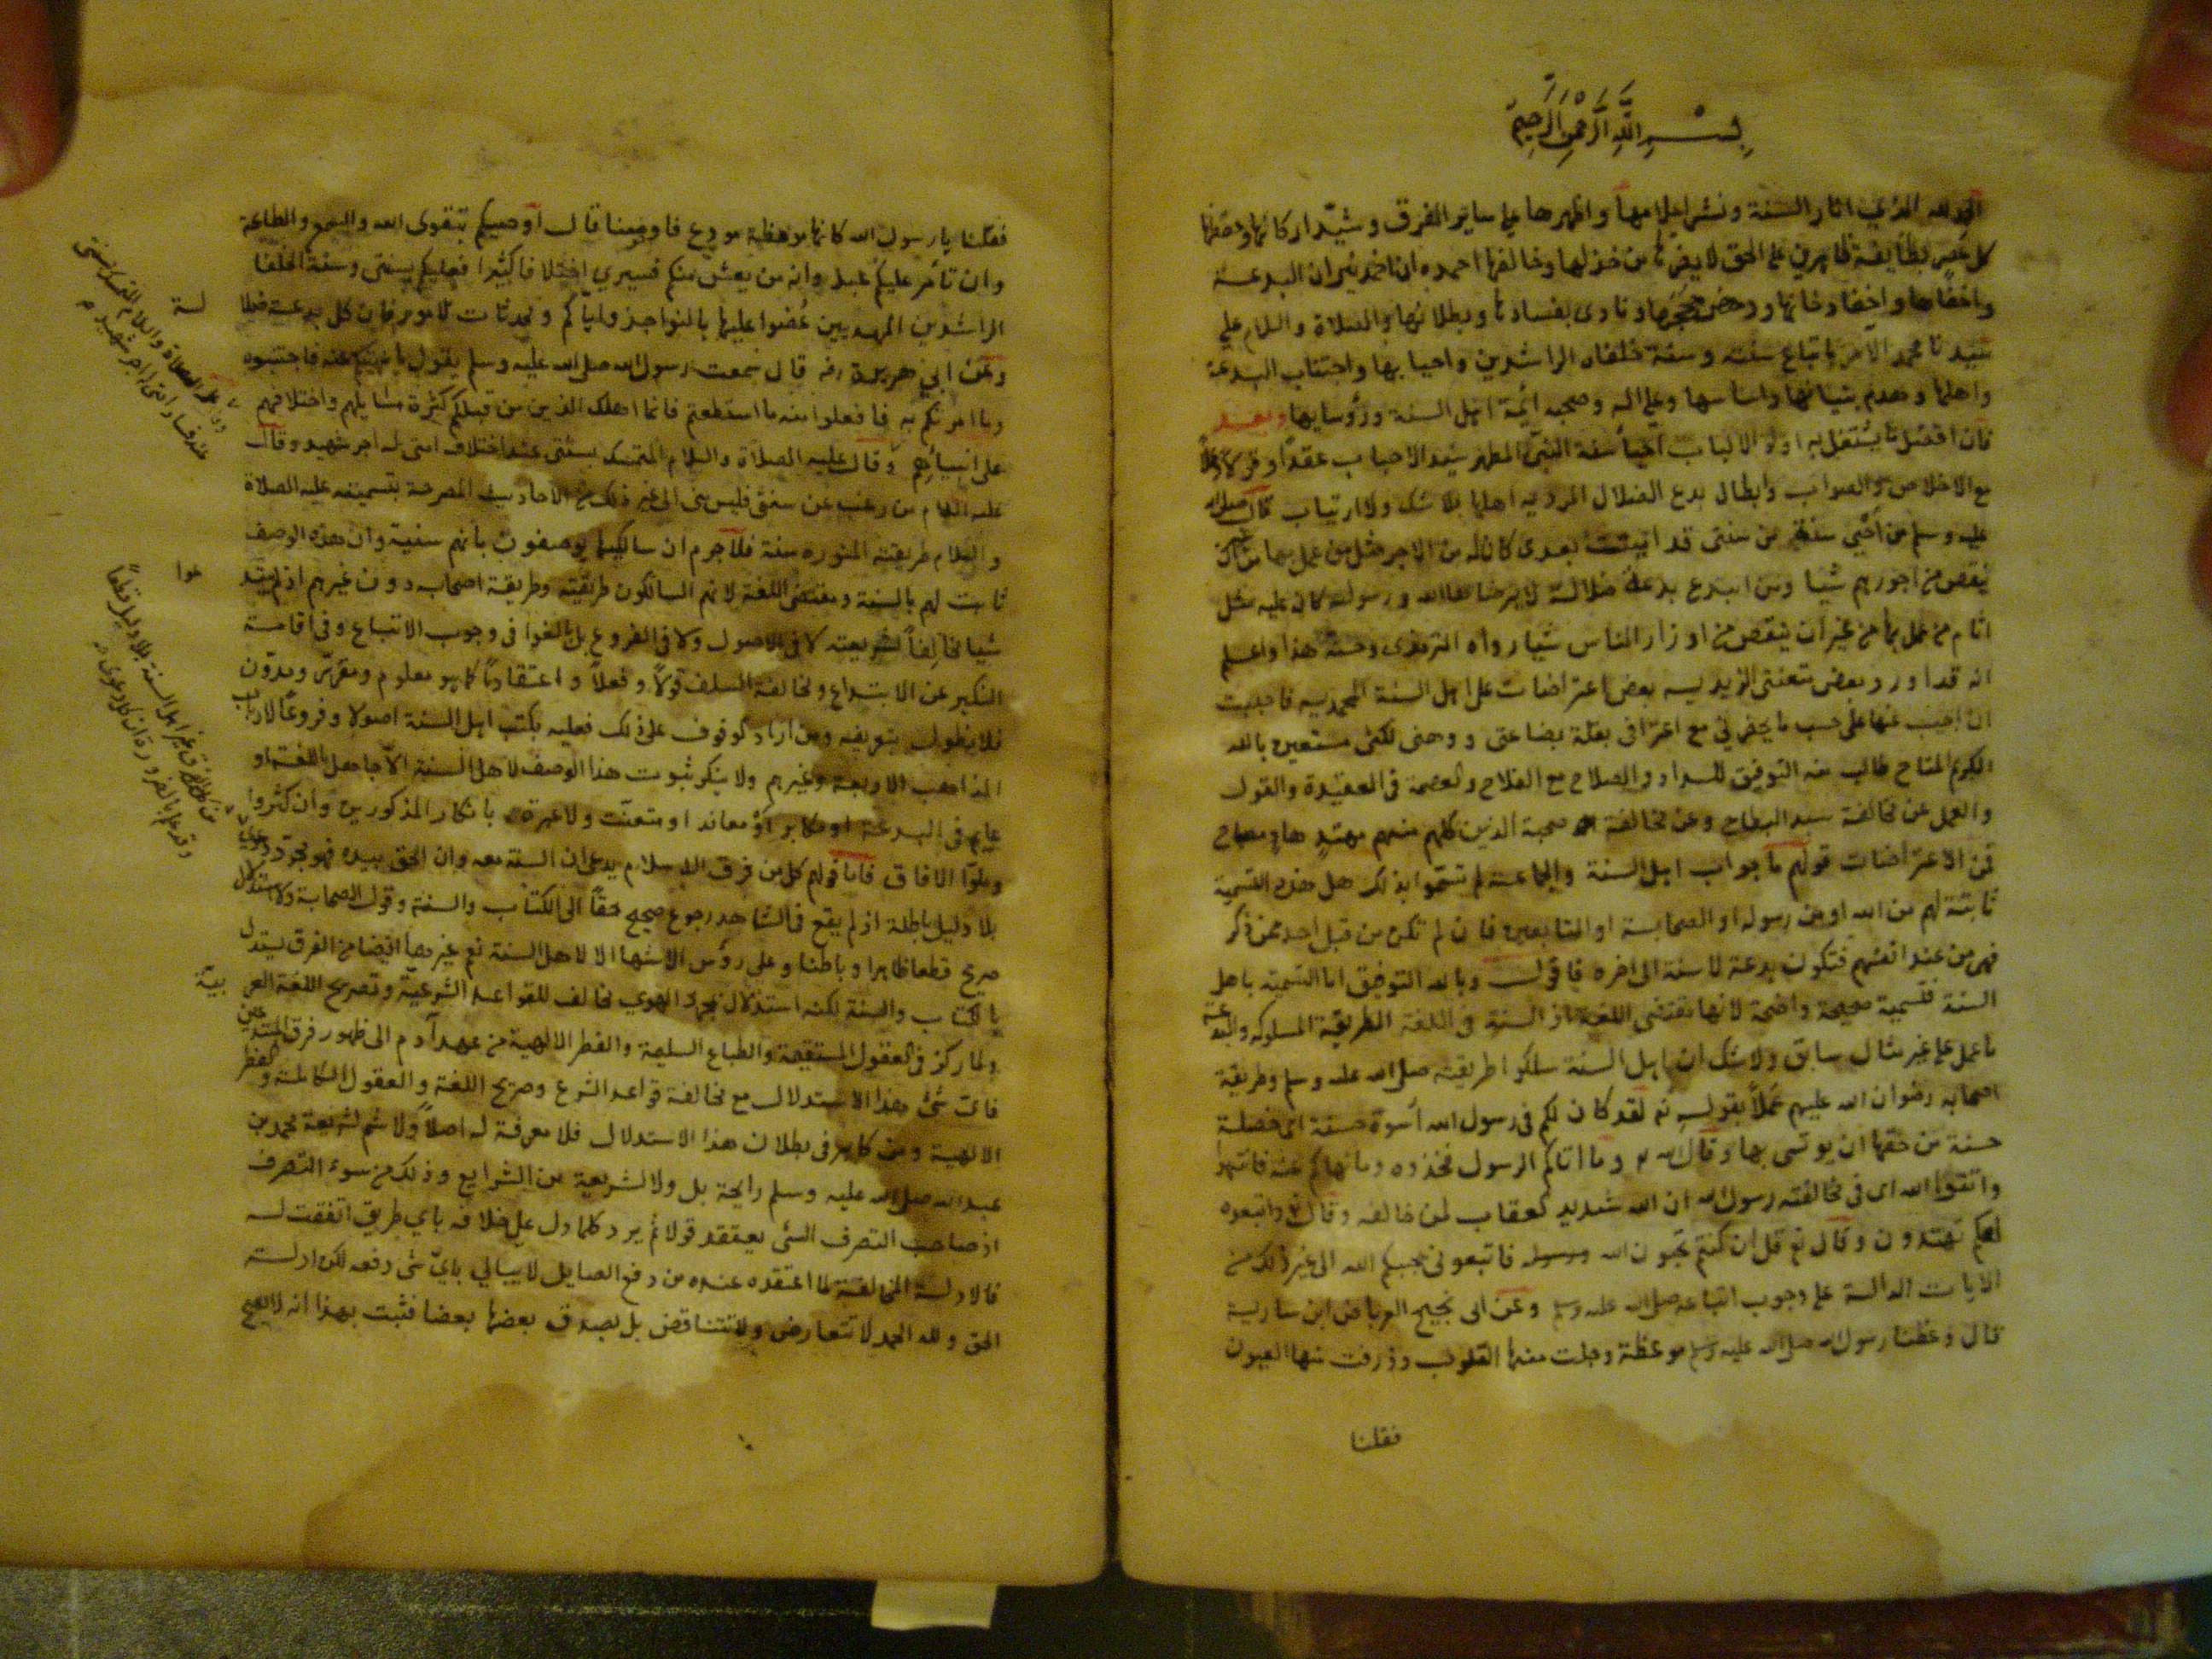 بسم الله الرحمن الرحيم
الحمد لله الذي انار السنة ونشر اعلامها واظهرها على ساير الفرق وشيد اركانها وحفظها
كل عصر بطايفة ظاهرين على الحق لا يضرها من خذلها وخالفها احمده ان اخمد نيران البدعة
واخفاها ودحض حججها ونادى بفسادها وبطلانها والصلاة والسلام على
سيدنا محمد الآمر باتباع سنته وسنة خلفاه الراشدين واحيابها واجتناب البدعة
واهلها وهدم بنيانها واساسها وعلى اله وصحبه ائمة اهل السنة ورؤسايها وبعد
فان افضل ما يشتغل به اولو الالباب احيأ سنة النبي المطهر سيد الاحباب عقدا وقولا وفعلاً
مع الاخلاص والصواب وابطال بدع الضلال المردية اهلها بلا شك ولا ارتياب قال صلى الله
عليه وسلم من احيى سنة من سنتي قد اميتت بعدى كان له من الاجر مثل من عمل بها من غير ان
ينقص من اجورهم شيا ومن ابتدع بدعة ضلالة لا يرضاها الله ورسوله كان عليه مثل
اثام من عمل بها من غير ان ينقص من اوزار الناس شيا رواه الترمذى وحسنه هذا واعلم
انه قد اورد بعض متعنتى الزيدية بعض اعتراضات على اهل السنة المحمدية فاحببت
ان اجيب عنها على حسب ما يحضرني مع اعترافى بقلة بضاعتى ووهنى لكنى مستعين بالله
الكريم الفتاح طالب منه التوفيق للسداد والصلاح مع الفلاح والعصمة فى العقيدة والقول
والعمل عن مخالفة سيد البطاح وعن مخالفة صحبه الذين كلهم منهم مهتد هاد ومصباح
فمن الاعتراضات قولهم ما جواب اهل السنة والجماعة لم تسموا بذلك هل هذه التسمية
ثابتة لهم من الله او من رسوله او الصحابة او التابعين فان لم تكن من قبل احد ممن ذكر
فهى من عند انفسهم فتكون بدعة لا سنة الى اخره فاقول وبالله التوفيق اما التسمية باهل
السنة فتسمية صحيحة واضحة لانها مقتضى اللغة اذ السنة فى اللغة الطريقة المسلوكه والبدعة
ما عمل على غير مثال سابق ولا شك ان اهل السنة سلكوا طريقته صلى الله عليه وسلم وطريقة
اصحابه رضوان الله عليهم عملاً بقوله تع لقد كان لكم فى رسول الله أسوة حسنة اى خصلة
حسنة من حقها ان يوتسى بها وقال الله تع وما اتاكم الرسول فخذوه وما نهاكم عنه فانتهوا
واتقوا الله اى فى مخالفته رسول الله ان الله شديد العقاب لمن خالفه وقال تع واتبعوه
لعلكم تهتدون وقال تع قل ان كنتم تحبون الله فاتبعونى يحببكم الله الى غير ذلك من
الايات الدالة على وجوب اتباعه صلى الله عليه وسلم وعن ابى نجيح العرباض ابن سارية
قال وعظنا رسول الله صلى الله عليه وسلم موعظة وجلت منها القلوب وذرفت منها العيون
فقلنا
فقلنا يا رسول الله كانها موعظة مودع فاوصنا قال أوصيكم بتقوى الله والسمع والطاعة
وان تأمر عليكم عبد وانه من يعش منكم فسيرى اختلافا كثيرا فعليكم بسنتى وسنة الخلفا
الراشدين المهديين عضوا عليها بالنواجذ واياكم ومحدثات الامور فان كل بدعة ضلا
لة
وعن ابي هريرة رضه قال سمعت رسول الله صلى الله عليه وسلم يقول ما نهيتكم عنه فاجتنبوه
وما امرتكم به فافعلوا منه ما استطعتم فانما اهلك الذين من قبلكم كثرة مسايلهم واختلافهم
على انبيائهم وقال عليه الصلاة والسلام المتمسك بسنتى عند اختلاف امتى له اجر شهيد وقال
عليه السلام من رغب عن سنتى فليس منى الى غير ذلك من الاحاديث المصرحة بتسميته عليه الصلاة
والسلام طريقته المنورة سنة فلا جرم ان سالكيها يوصفون بانهم سنية وان هذه الوصف
ثابت لهم بالسنة ومقتضى اللغة لانهم السالكون طريقته وطريقة اصحابه دون غيرهم اذ لم يبتد
عوا
شيا مخالفاً لشريعته لا فى الاصول ولا فى الفروع بل بالغوا فى وجوب الاتباع وفى اقامة
النكير عن الابتداع ومخالفة السلف قولاً وفعلاً واعتقادا كما هو معلوم ومقرر ومدون
فلا نطول بتعريفه ومن اراد الوقوف على ذلك فعليه بكتب اهل السنة اصولا وفروعاً لارباب
المذاهب الاربعة وغيرهم ولا ينكر ثبوت هذا الوصف لاهل السنة الا جاهل باللغة او
عامه فى البدعة او مكابر او معاند او متعنت ولا عبرة بانكار المذكورين وان كثروا
وملؤا الافاق فاما قولهم كل من فرق الاسلام يدعى ان السنة معه وان الحق بيده فهو مجرد دعوى
بلا دليل باطلة اذ لم يقع فى الشاهد رجوع صحيح حقاً الى الكتاب والسنة وقول الصحابة والاستدلال
صريح قطعا ظاهرا وباطنا وعلى رؤس الاشهاد الا لاهل السنة نع غيرهم ايضا من الفرق يستدل
بالكتاب والسنة لكنه استدلال بمجرد الهوى مخالف للقواعد الشرعية وتصريح اللغة العر
بية
ولما ركز فى العقول المستقيمة والطباع السليمة والفطر الالهية من عهد آدم الى ظهور فرق المبتدعين
فاى شئ هذا الاستدلال مع مخالفة قواعد الشرع وصريح اللغة والعقول الكاملة والفطر
الالهية ومن كابر فى بطلان هذا الاستدلال فلا معرفة له اصلاً ولا شم لشريعة محمد بن
عبد الله صلى الله عليه وسلم رايحة بل ولا لشريعة من الشرايع وذلك من سوء التصرف
اذ صاحب التصرف السئ يعتقد قولا ثم يرد كلما دل على خلافه باي طريق اتفقت له
فالادلة المخالفة لما اعتقده عنده من دفع الصايل لا يبالي باي شى دفعه لكن ادلة
الحق ولله الحمد لا تتعارض ولا تتناقض بل يصدق بعضها بعضا فثبت بهذا انه لا يصح